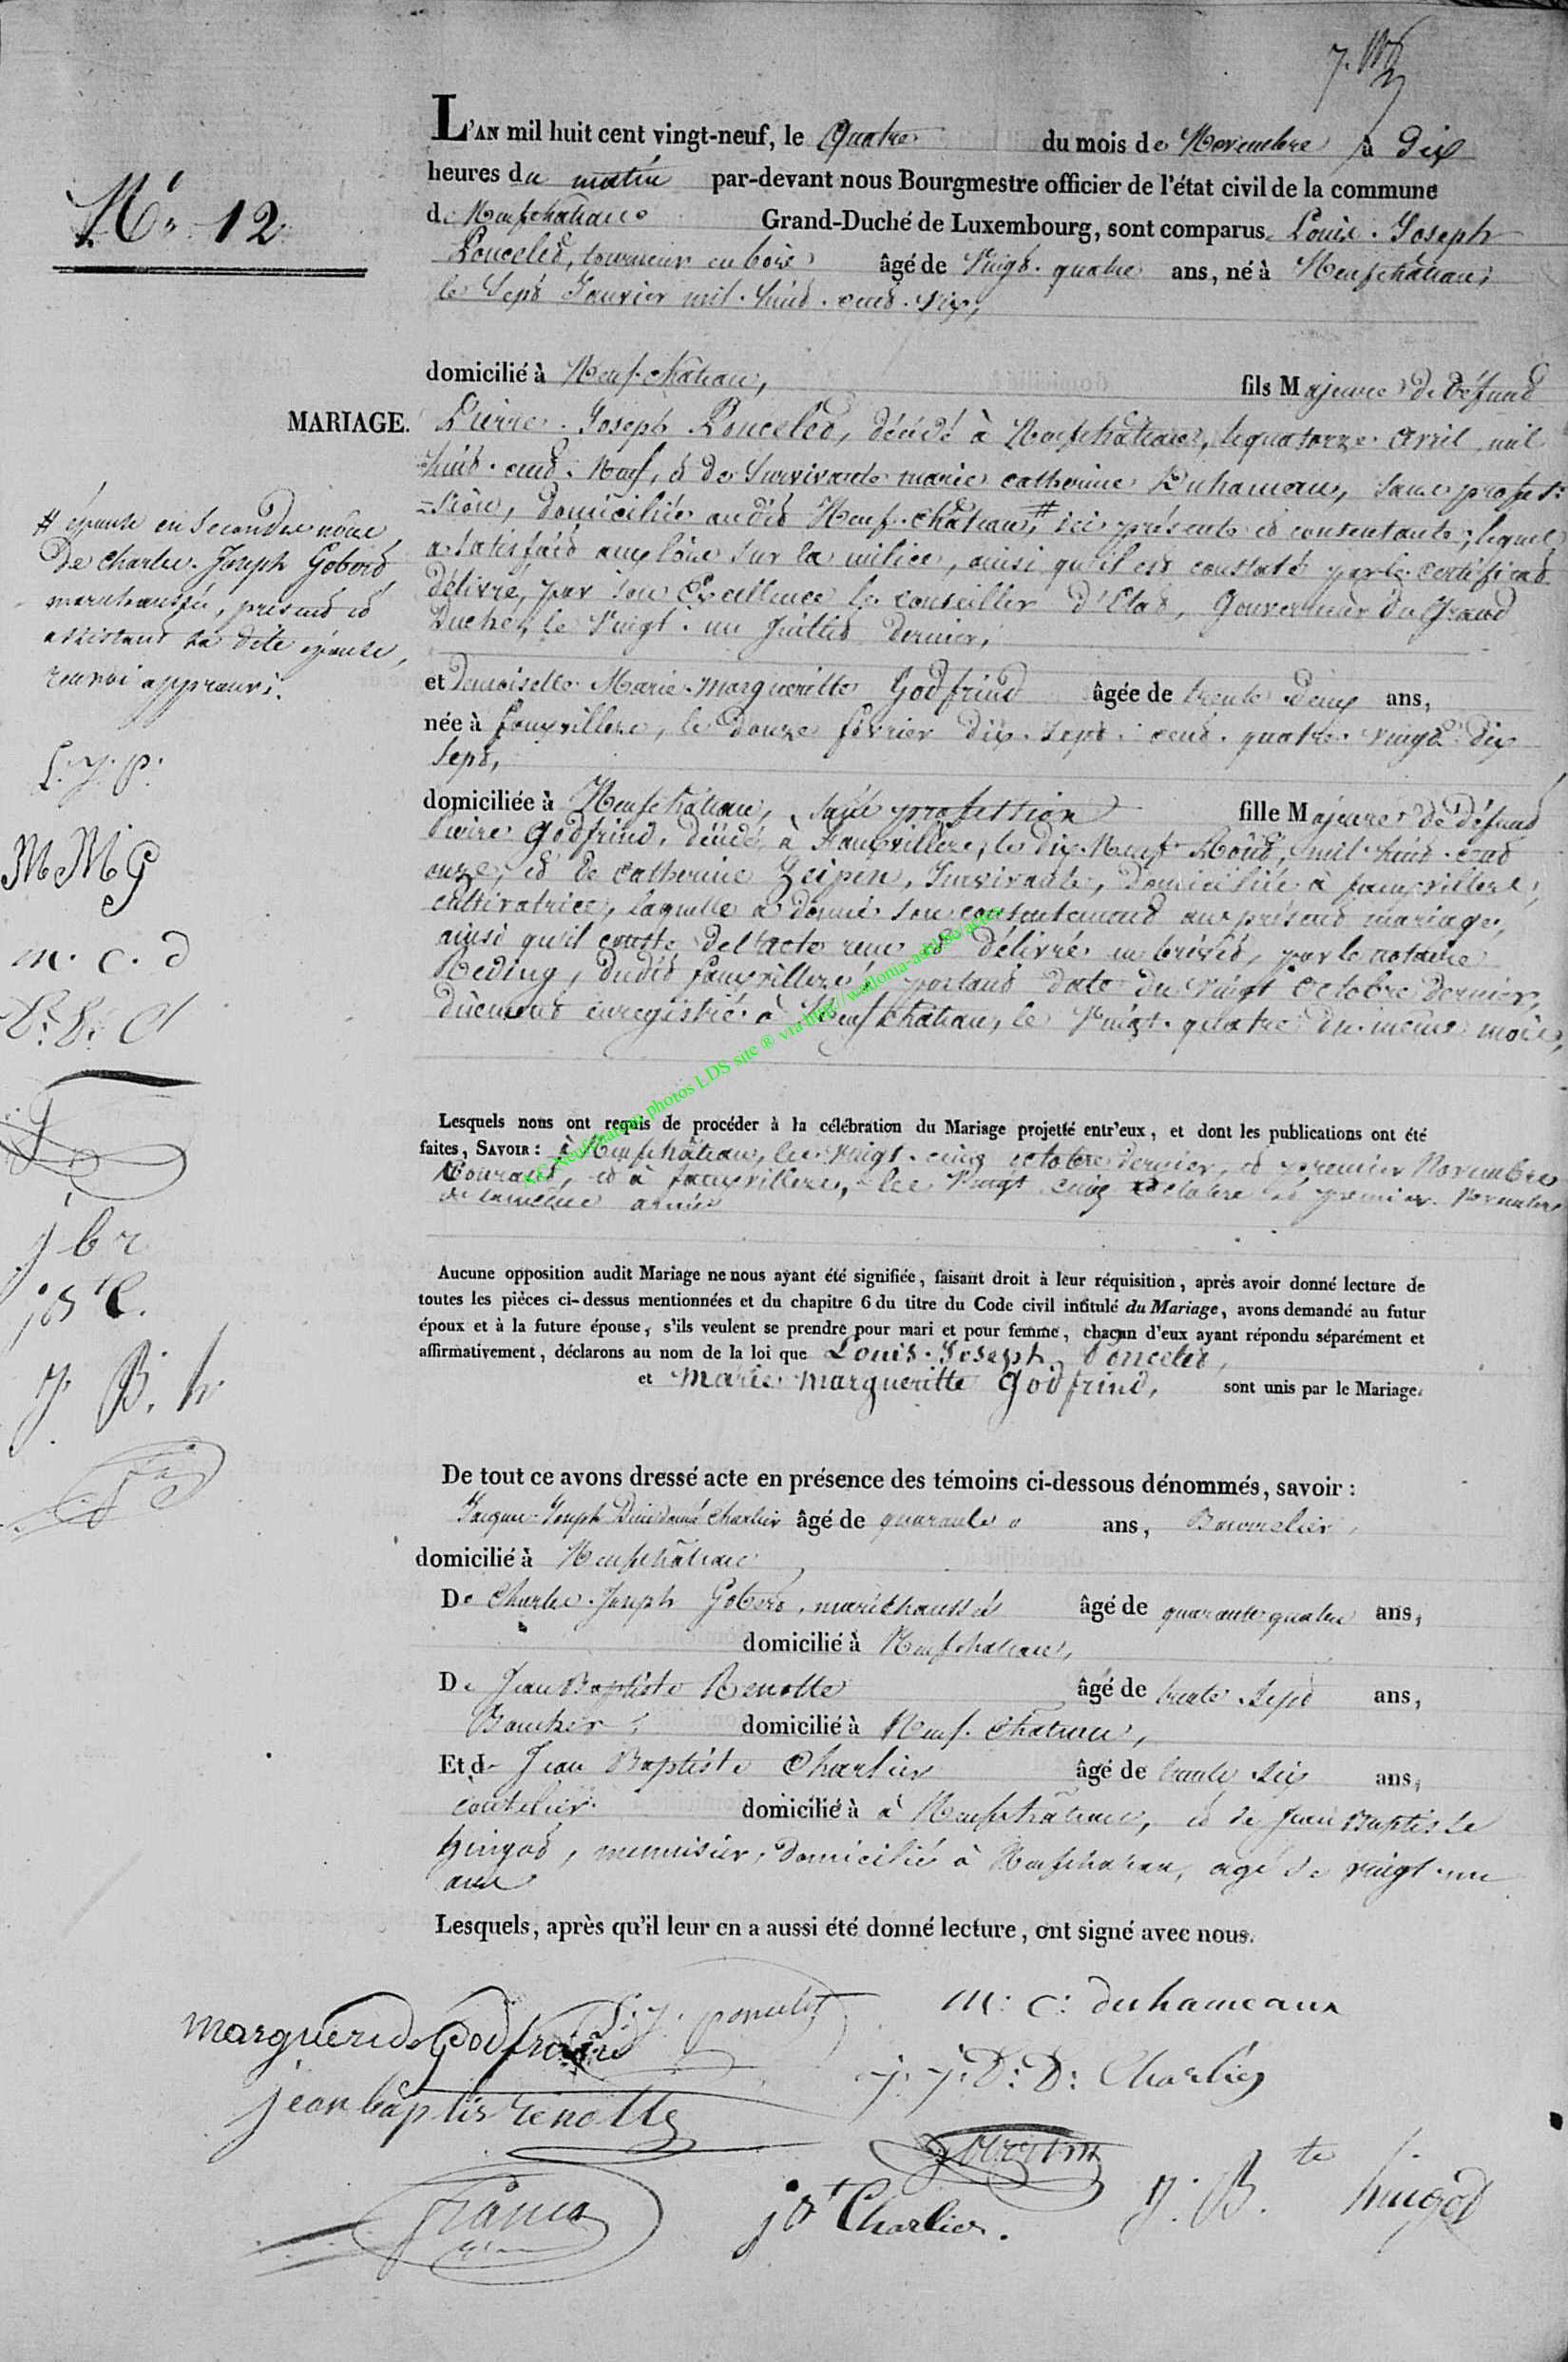 Nº 12
MARIAGE.
L'AN mil huit cent vingt-neuf, le Quatre du mois de Novembre à Dix
heures du matin par-devant nous Bourgmestre officier de l'état civil de la commune
de Neufchâteau Grand-Duché de Luxembourg, sont comparus Louis Joseph
Poncelet, tourneur en bois âgé de Vingt-quatre ans, né à Neufchâteau,
le Sept Janvier mil-huit-cent-six,
domicilié à Neufchâteau, fils Majeure de Défunt
Pierre Joseph Poncelet, décédé à Neufchâteau, le quatorze Avril mil
huit-cent-Neuf, et de Survivante marie catherine Duhameau, sans profes=
=sion, Domiciliée audit Neufchâteau, # ici présente et consentante; lequel
a satisfait aux lois sur la milice, ainsi qu'il est constaté par le certificat
délivré, par Son Excellence le conseiller d'Etat, Gouverneur du Grand
Duché, le Vingt-un Juillet dernier,
# épouse en Secondes nôces
De Charles Joseph Gobert
marechaussée, présent et
assistant sa dite épouse,
renvoi approuvé.
L. J. P.
M M G
m. c. d
j b r
j bt C.
J. B. h
et Demoiselle Marie Margueritte Godfrind âgée de trente deux ans,
née à fauvillers, le Douze février Dix-Sept-cent-quatre-vingt-dix
Sept,
domiciliée à Neufchâteau, sans profession fille Majeure de défunt
Pierre Godfrind, décédé à Fauvillers, le dix-Neuf Août, mil huit-cent
onze, et de Catherine Zeipen, Survivante, Domiciliée à fauvillers,
cultivatrice, laquelle a donné son consentement au présent mariage,
ainsi qu'il conste de l'acte reçu et délivré en brévet, par le notaire
Reding, dudit fauvillers, portant date du vingt Octobre Dernier,
dûement enregistré à Neufchâteau, le Vingt-quatre du même mois,
Lesquels nous ont requis de procéder à la célébration du Mariage projetté entr'eux, et dont les publications ont été
faites, SAVOIR: à Neufchâteau, les vingt-cinq octobre dernier, et premier Novembre
Courant, et à fauvillers, les Vingt cinq octobre et premier Novembre
de la même année
Aucune opposition audit Mariage ne nous ayant été signifiée, faisant droit à leur réquisition, après avoir donné lecture de
toutes les pièces ci-dessus mentionnées et du chapitre 6 du titre du Code civil intitulé du Mariage, avons demandé au futur
époux et à la future épouse, s'ils veulent se prendre pour mari et pour femme, chacun d'eux ayant répondu séparément et
affirmativement, déclarons au nom de la loi que Louis-Joseph Poncelet,
et Marie Margueritte Godfrind, sont unis par le Mariage.
De tout ce avons dressé acte en présence des témoins ci-dessous dénommés, savoir:
Jacques Joseph Dieudonné Charlier âgé de quarante ans, Bourrelier,
domicilié à Neufchâteau
De Charles Joseph Gobert, maréchaussée âgé de quarante quatre ans,
domicilié à Neufchateau,
De Jean Baptiste Renotte âgé de trente-Sept ans,
Boucher, domicilié à Neufchâteau,
Et de Jean Baptiste Charlier âgé de trente-six ans,
coutelier domicilié à à Neufchâteau, et de Jean Baptiste
hingot, menuisier, Domicilié à Neufchateau, agé de vingt-un
ans
Lesquels, après qu'il leur en a aussi été donné lecture, ont signé avec nous.
L. J. poncelet m: c: duhameaux
marguerid Godfrind j. j: D: D: Charlier
jean baptis renotte
j bt Charlier. J. B.te hingot
AEC Neufchateau photos LDS site ® via http://wallonia-asbl.be/actes